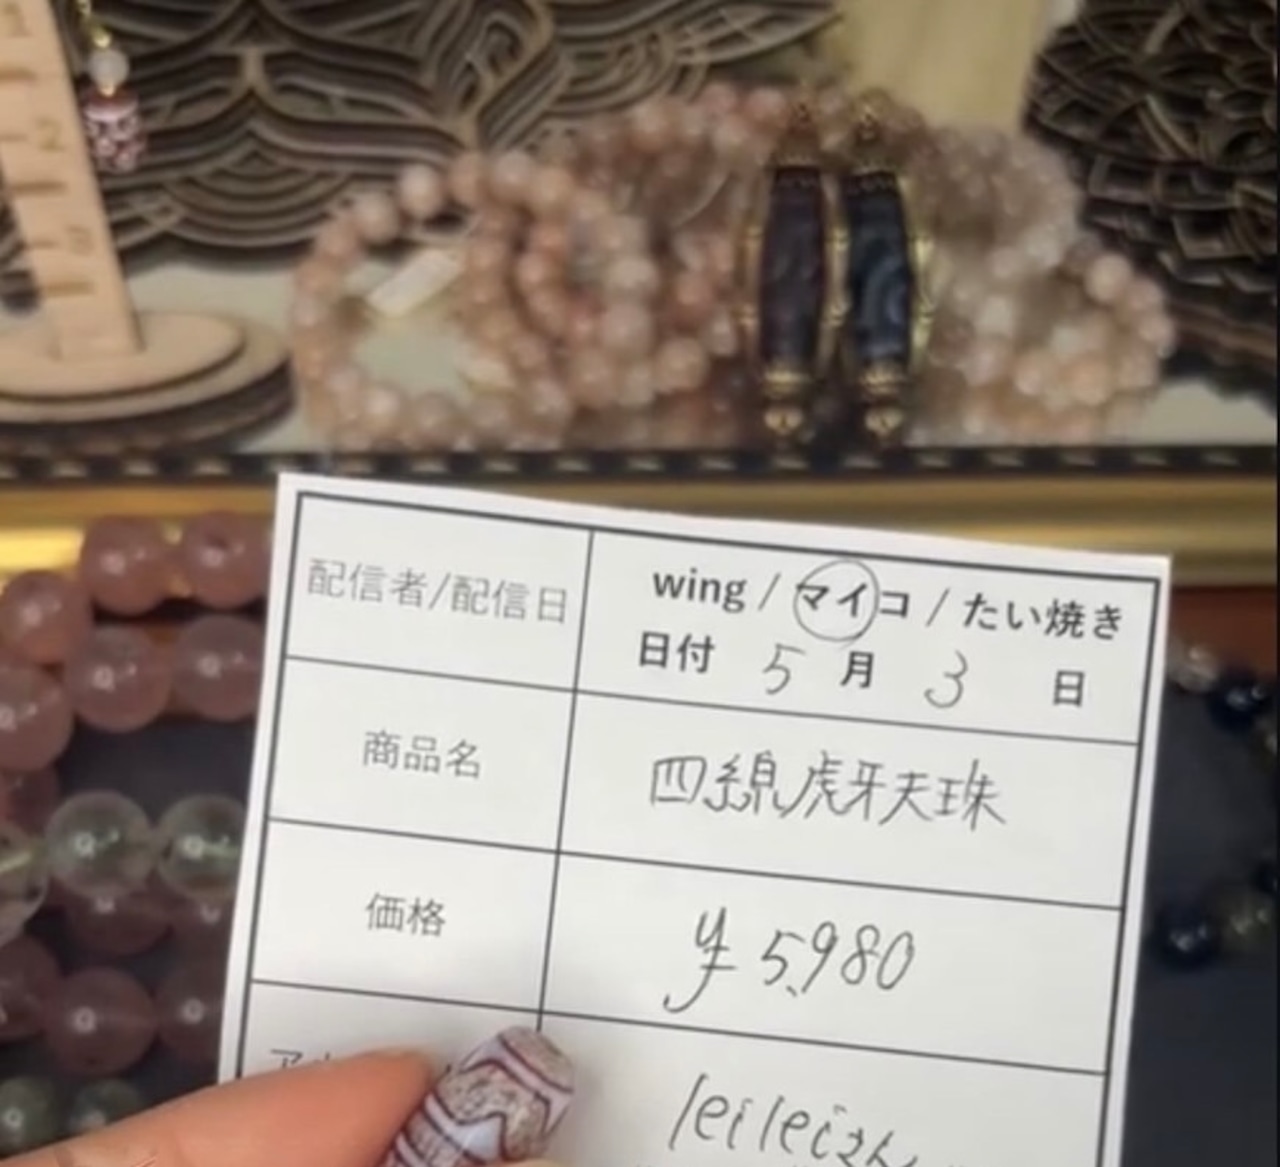 1
2
3
配信者/配信日
wing / マイコ / たい焼き
日付 5 月 3 日
商品名
四線虎牙天珠
価格
¥5,980
leileiさん